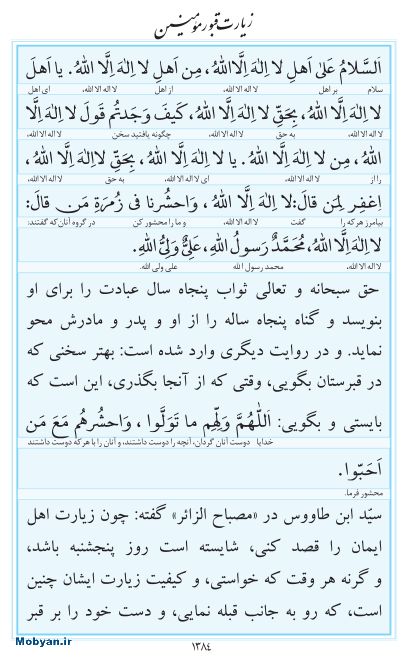 زیارت قبور مؤمنین
اَلسَّلامُ عَلیٰ اَهلِ لا اِلٰهَ اِلَّا اللهُ، مِن اَهلِ لا اِلٰهَ اِلَّا اللهُ. یا اَهلَ
سلام بر اهل لا اله الا الله، از اهل لا اله الا الله، ای اهل
لا اِلٰهَ اِلَّا اللهُ، بِحَقِّ لا اِلٰهَ اِلَّا اللهُ، کَیفَ وَجَدتُم قَولَ لا اِلٰهَ اِلَّا
لا اله الا الله، به حق لا اله الا الله، چگونه یافتید سخن لا اله الا الله
اللهُ، مِن لا اِلٰهَ اِلَّا اللهُ. یا لا اِلٰهَ اِلَّا اللهُ، بِحَقِّ لااِلٰهَ اِلَّا اللهُ،
را از لا اله الا الله، ای لا اله الا الله، به حق لا اله الا الله،
اِغفِر لِمَن قالَ: لا اِلٰهَ اِلَّا اللهُ، وَاحشُرنا فی زُمرَةِ مَن قالَ:
بیامرز هر که را گفت لا اله الا الله، و ما را محشور کن در گروه آنان که گفتند:
لا اِلٰهَ اِلَّا اللهُ، مُحَمَّدٌ رَسولُ اللهِ، عَلِیٌّ وَلِیُّ اللهِ.
لا اله الا الله، محمد رسول الله علی ولی الله.
حق سبحانه و تعالی ثواب پنجاه سال عبادت را برای او
بنویسد و گناه پنجاه ساله را از او و پدر و مادرش محو
نماید. و در روایت دیگری وارد شده است: بهتر سخنی که
در قبرستان بگویی، وقتی که از آنجا بگذری، این است که
بایستی و بگویی: اَللّٰهُمَّ وَلِّهِم ما تَوَلَّوا، وَاحشُرهُم مَعَ مَن
خدایا دوست آنان گردان، آنچه را دوست داشتند، و آنان را با هر که دوست داشتند
اَحَبّوا.
محشور فرما.
سیّد ابن طاووس در «مصباح الزائر» گفته: چون زیارت اهل
ایمان را قصد کنی، شایسته است روز پنجشنبه باشد،
و گرنه هر وقت که خواستی، و کیفیت زیارت ایشان چنین
است، که رو به جانب قبله نمایی، و دست خود را بر قبر
Mobyan.ir
۱۳۸٤